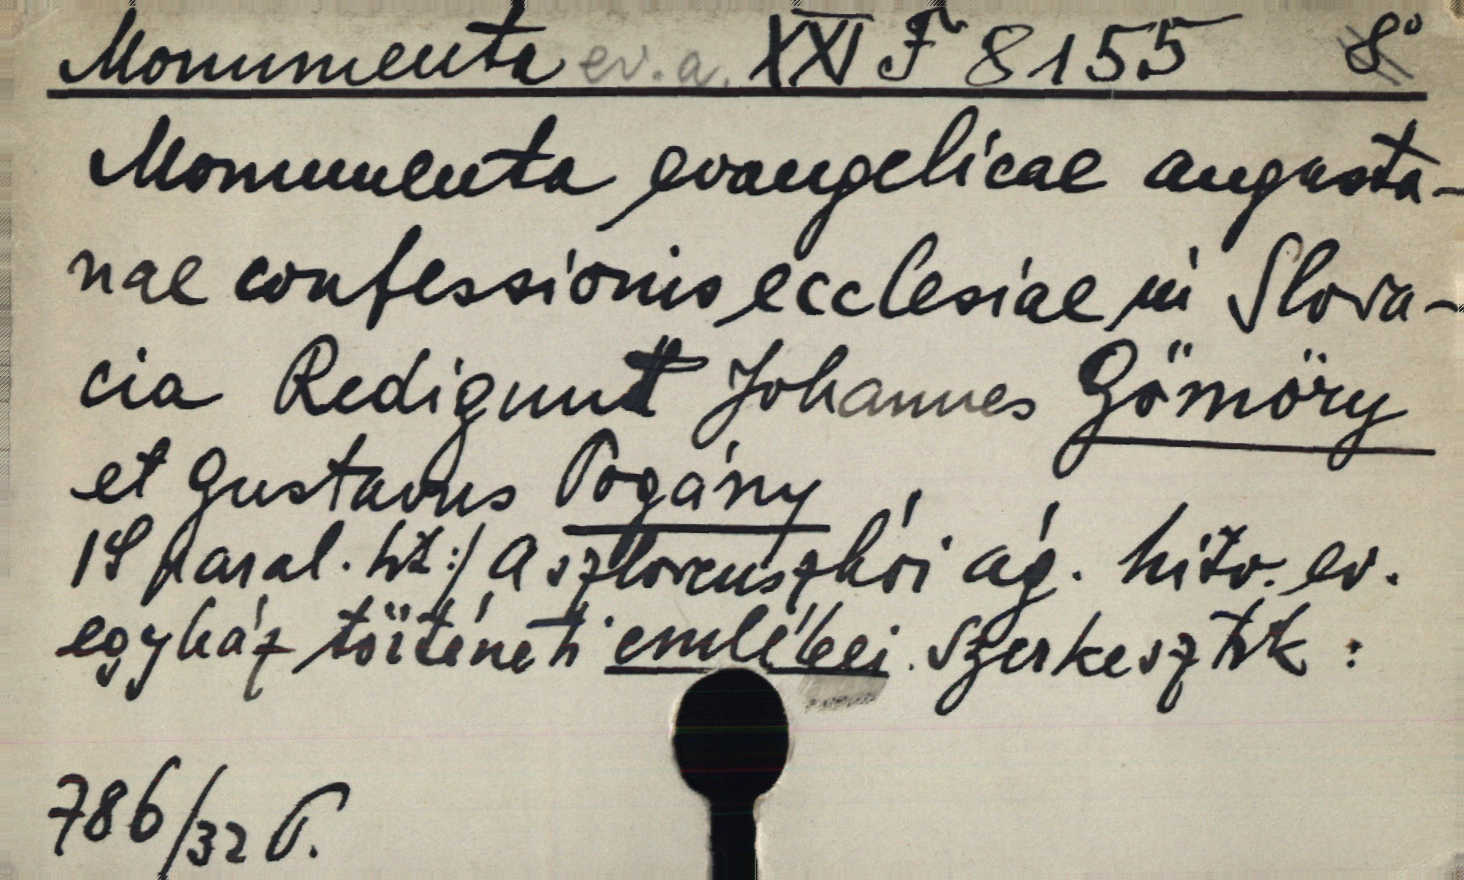 Monumenta ev. a. XXI F 8155 8°
Monumenta evangelicae augusta-
nae confessionis ecclesiae in Slova-
cia Redigunt Johannes Gömöry
et Gustavus Pogány
/S paral. tit:/ A szlovenszkói ág. hitv. ev.
egyház történeti emlékei. Szerkesztik :
786/32 P.